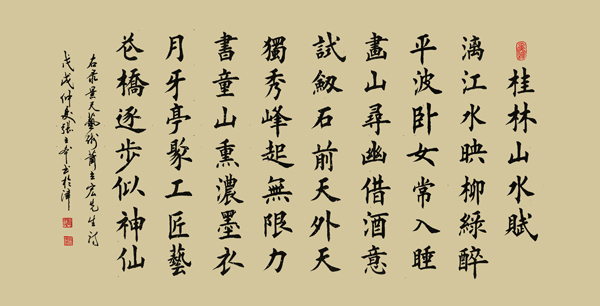 桂林山水賦
漓江水映柳綠醉
平波卧女常入睡
畫山尋幽借酒意
試釼石前天外天
獨秀峰起無限力
書童山熏濃墨衣
月牙亭聚工匠藝
花橋逐步似神仙
右录景天藝術先生诗
戊戌仲夏張书於津